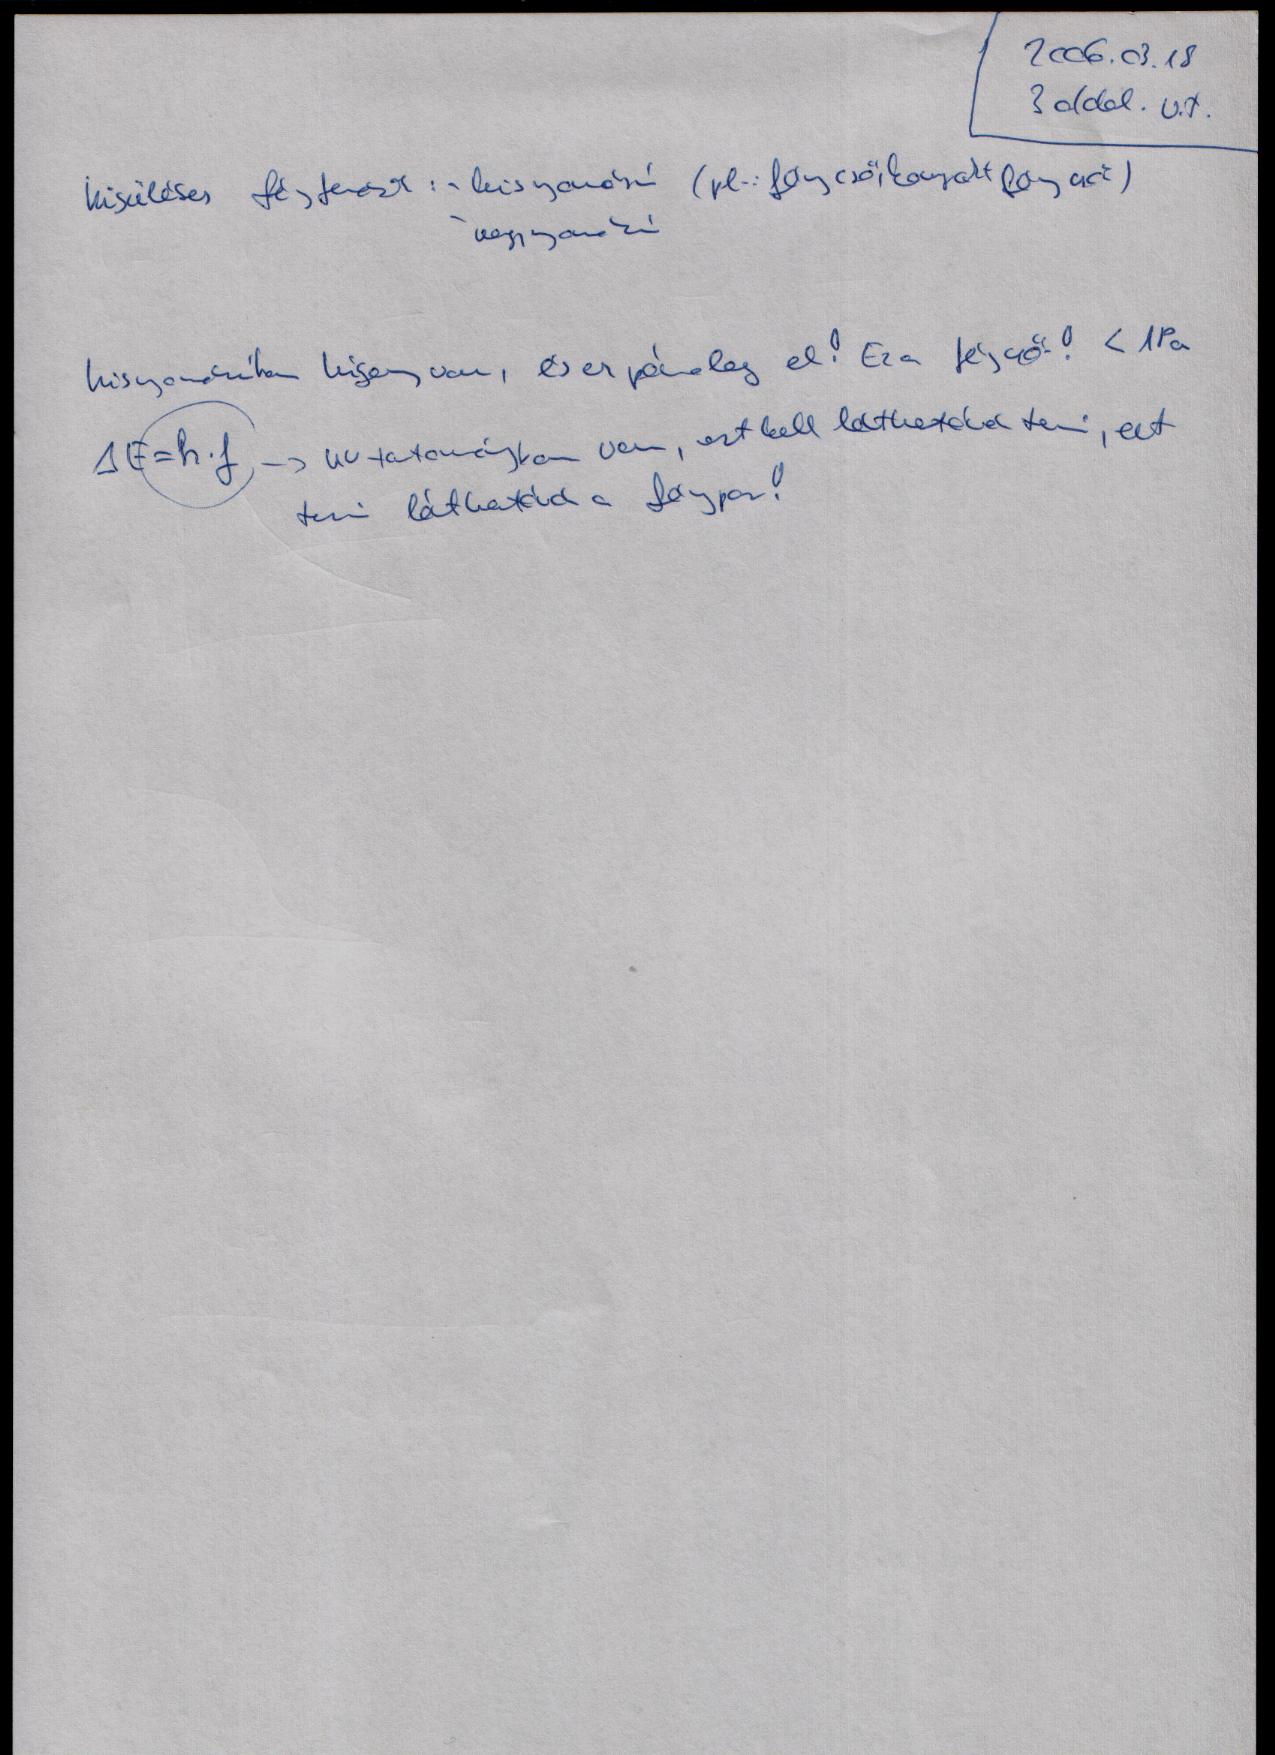 2006.03.18
3 oldal. V.I.
kisüléses fényforrások: - kisnyomású (pl.: fénycső, kompakt fénycső)
- nagynyomású
kisnyomásúban higany van, és ez párolog el! Ez a fénycső! < 1Pa
ΔE = h·f -> uv tartományban van, ezt kell láthatóvá tenni, ezt
teszi láthatóvá a fénypor!